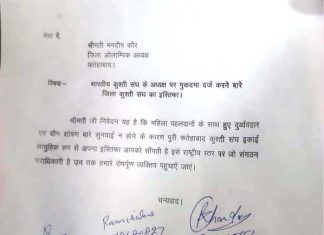 सेवा में,
श्रीमती मनदीप कौर
जिला ओलम्पिक अध्यक्ष
फतेहाबाद।
विषय:- भारतीय कुश्ती संघ के अध्यक्ष पर मुकदमा दर्ज करने बारे
जिला कुश्ती संघ का इस्तिफा।
श्रीमती जी निवेदन यह है कि महिला पहलवानों के साथ हुए दुर्व्यवहार
एवं यौन शोषण बारे सुनवाई न होने के कारण पूरी फतेहाबाद कुश्ती संघ इकाई
सामुहिक रूप से अपना इस्तिफा आपको सौंपती है इसे राष्ट्रीय स्तर पर जो संगठन
पदाधिकारी है उन तक हमारे रोषपूर्ण व्यक्तिव पहुचाएँ जाएं।
धन्यवाद।